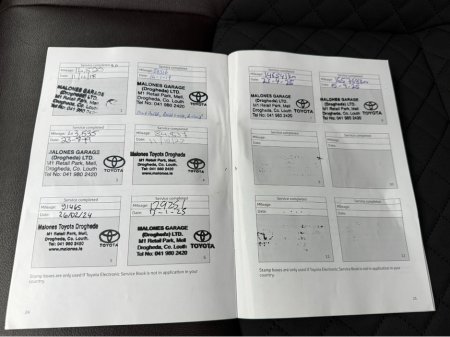 Service completed
Mileage:
Date:
MALONES GARAGE
(Drogheda) LTD.
M1 Retail Park, Mell,
Drogheda, Co. Louth
Tel No: 041 980 2420
TOYOTA
Service completed
Mileage:
Date:
MALONES GARAGE
(Drogheda) LTD.
M1 Retail Park, Mell,
Drogheda, Co. Louth
Tel No: 041 980 2420
TOYOTA
Service completed
Mileage:
Date:
MALONES GARAGE
(Drogheda) LTD.
M1 Retail Park, Mell,
Drogheda, Co. Louth
Tel No: 041 980 2420
TOYOTA
Service completed
Mileage:
Date:
Malones Toyota Drogheda
M1 Retail Park, Mell,
Drogheda, Co. Louth.
Tel: 041 980 2420
www.malones.ie
TOYOTA
Service completed
Mileage: 91465
Date: 26/02/24
Malones Toyota Drogheda
M1 Retail Park, Mell,
Drogheda, Co. Louth.
Tel: 041 980 2420
www.malones.ie
TOYOTA
Service completed
Mileage:
Date: 17-1-25
MALONES GARAGE
(Drogheda) LTD.
M1 Retail Park, Mell,
Drogheda, Co. Louth
Tel No: 041 980 2420
TOYOTA
Stamp boxes are only used if Toyota Electronic Service Book is not in application in your
country.
24
Service completed
Mileage:
Date:
MALONES GARAGE
(Drogheda) LTD.
M1 Retail Park, Mell,
Drogheda, Co. Louth
Tel No: 041 980 2420
TOYOTA
Service completed
Mileage:
Date:
MALONES GARAGE
(Drogheda) LTD.
M1 Retail Park, Mell,
Drogheda, Co. Louth
Tel No: 041 980 2420
TOYOTA
Service completed
Mileage:
Date:
9
Service completed
Mileage:
Date:
10
Service completed
Mileage:
Date:
11
Service completed
Mileage:
Date:
12
Stamp boxes are only used if Toyota Electronic Service Book is not in application in your
country.
25